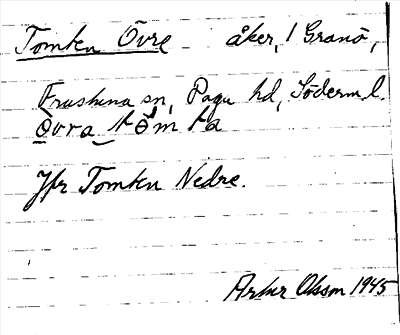 Tomten Övre åker, 1 Granö,
Frustuna sn, Daga hd, Söderm. l.
Övra tömta
Jfr Tomten Nedre.
Artur Olsson 1945